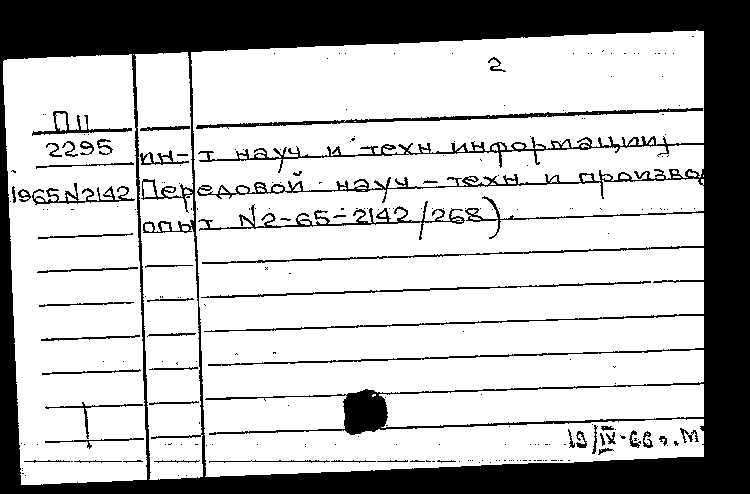 2
П11
2295 ин-т науч. и техн. информации.
1965 N2142 Передовой науч-техн. и произво
опыт N2-65-2142/268).
19/IV-66г. М